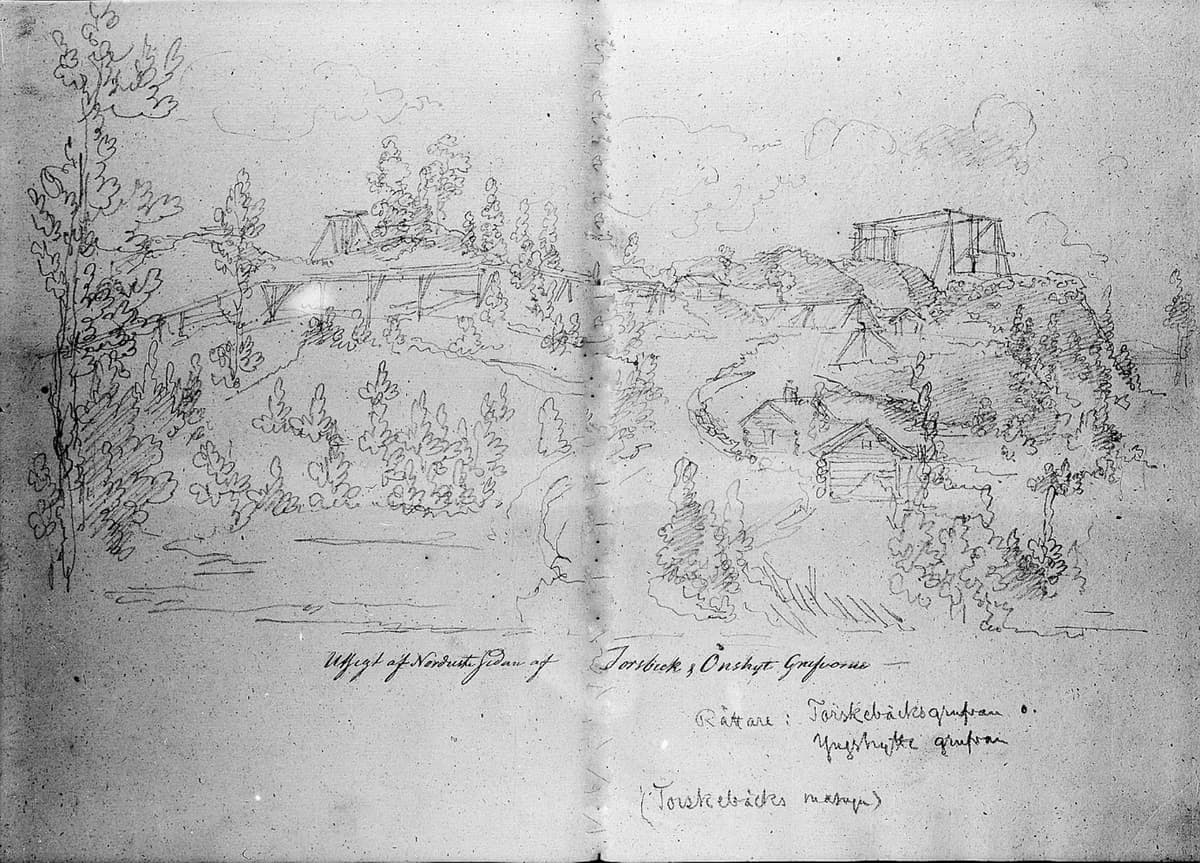 Utsigt af Nordvestsidan af Torsbeck & Önshyt Grufvorne —
Rättare: Torskebäcksgrufvan o.
Yngshytte grufvan
(Torskebäcks masugn)